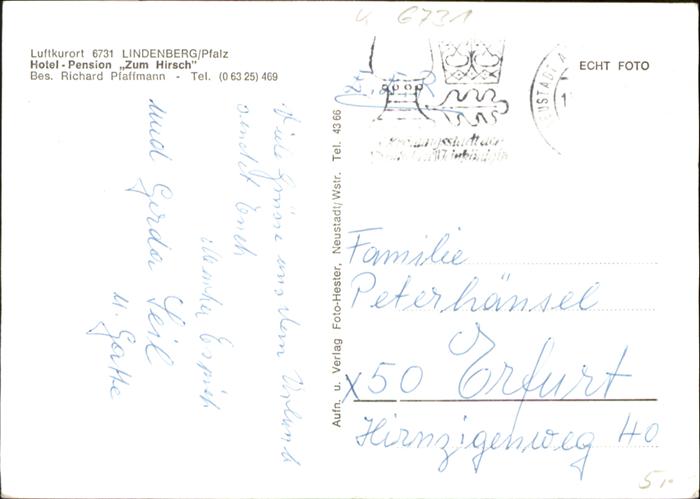 u 6731
Luftkurort 6731 LINDENBERG/Pfalz
Hotel-Pension „Zum Hirsch"
Bes. Richard Pfaffmann - Tel. (0 63 25) 469
ECHT FOTO
NEUSTADT
Viele Grüsse aus dem Urlaub
sendet Euch
und Gerda Seil
M. Goethe
Aufn. u. Verlag Foto-Hester, Neustadt/Wstr. Tel. 43 66
Familie
Peterhänsel
x50 Erfurt
Hirnzigenweg 40
5,-